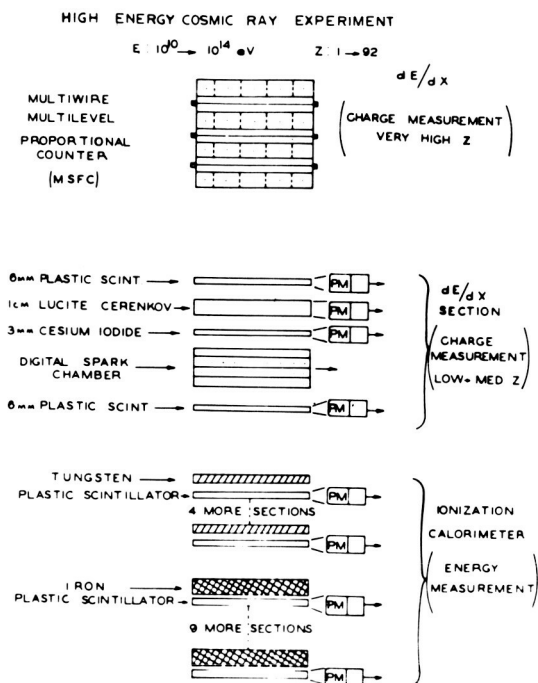 HIGH ENERGY COSMIC RAY EXPERIMENT
E : 10^10 → 10^14 eV Z : 1 → 92
dE/dX
MULTIWIRE
MULTILEVEL
PROPORTIONAL
COUNTER
(MSFC)
(CHARGE MEASUREMENT
VERY HIGH Z)
6mm PLASTIC SCINT
PM
1cm LUCITE CERENKOV
PM
3mm CESIUM IODIDE
PM
DIGITAL SPARK
CHAMBER
6mm PLASTIC SCINT
PM
dE/dX
SECTION
(CHARGE
MEASUREMENT
LOW-MED Z)
TUNGSTEN
PLASTIC SCINTILLATOR
PM
4 MORE SECTIONS
PM
IRON
PLASTIC SCINTILLATOR
PM
9 MORE SECTIONS
PM
IONIZATION
CALORIMETER
(ENERGY
MEASUREMENT)